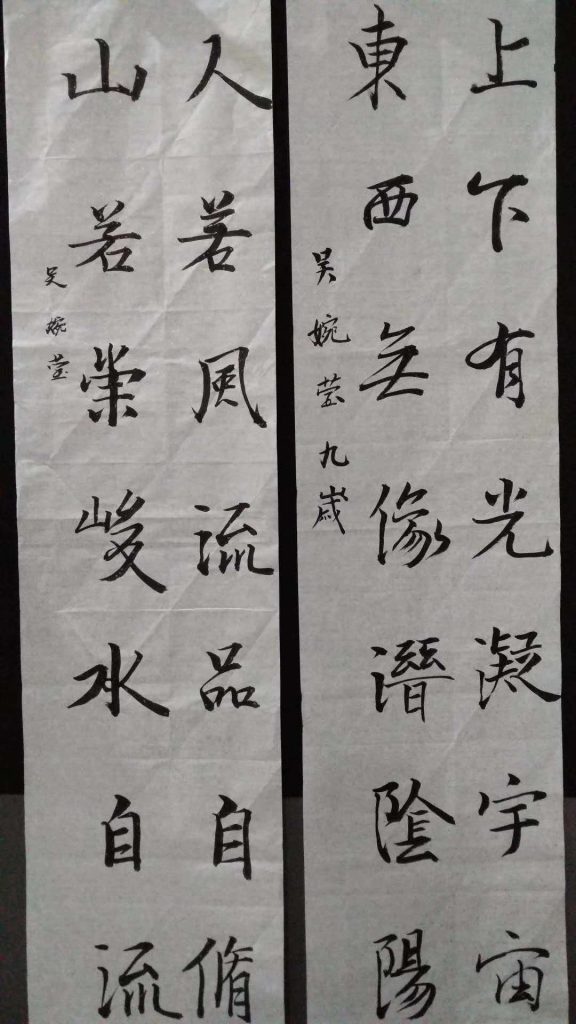 上下有光凝宇宙
東西無像潛陰陽
吴婉莹九歲
人若風流品自脩
山若崇峻水自流
吴婉莹